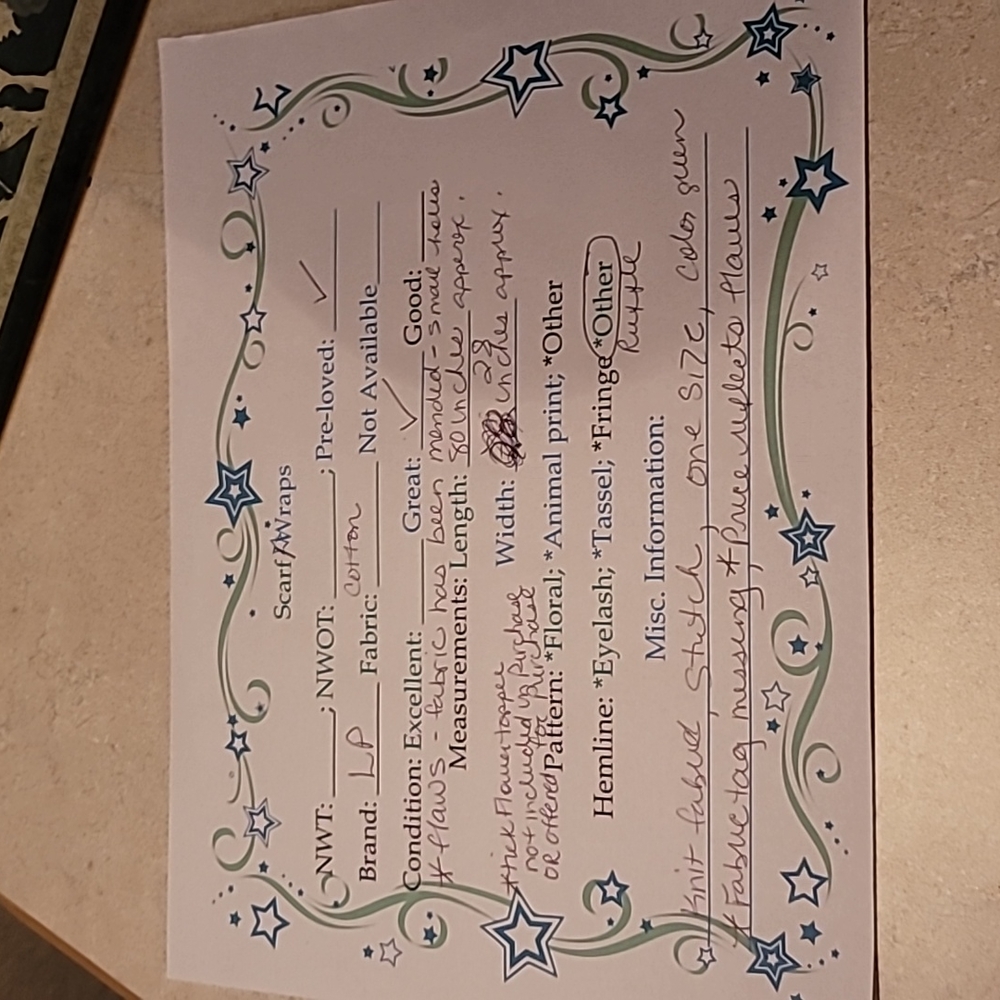 Scarf/Wraps
NWT: ______; NWOT: ______; Pre-loved: ✓
Brand: LP Fabric: cotton Not Available
Condition: Excellent: ______ Great: ✓ Good: ______
* flaws - fabric has been mended - small holes
Measurements: Length: 80 inches approx.
Width: 28 inches approx.
*stick Flower topper
not included w/ purchase
OR offered for purchase
Pattern: *Floral; *Animal print; *Other
Hemline: *Eyelash; *Tassel; *Fringe *Other
Ruffle
Misc. Information:
Knit fabric, Stitch, one size, color green
* Fabric tag missing, * Price reflects flaws